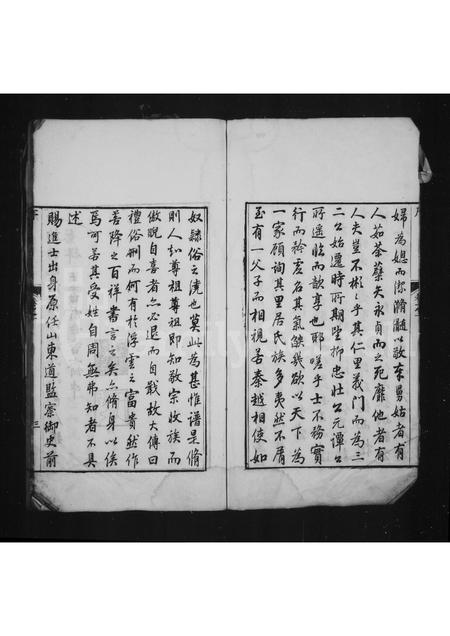 婦為媳而潔滫髓以敬奉舅姑者有
人茹茶蘗矢永自而之死靡他者有
人夫豈不彬彬乎其仁里義门而為三
二公始遷時所期望抑忠壯公元譚公
所遥臨而歆享也耶嗟乎士不務實
行而矜虚名其氣燄幾欲以天下為
一家顧詢其里居氏族多夷然不屑
至有一父子而相視若秦越相使如
奴隸俗之澆也莫此為甚惟譜是脩
則人知尊祖尊祖即知敬宗收族而
傲睨自喜者亦必退而自戢故大傳曰
禮俗刑而何有於浮雲之富貴然作
善降之百祥書言之矣亦脩身以俟
焉可若其受姓自周無弗知者不具
述
賜進士出身原任山東道監察御史前
序
三